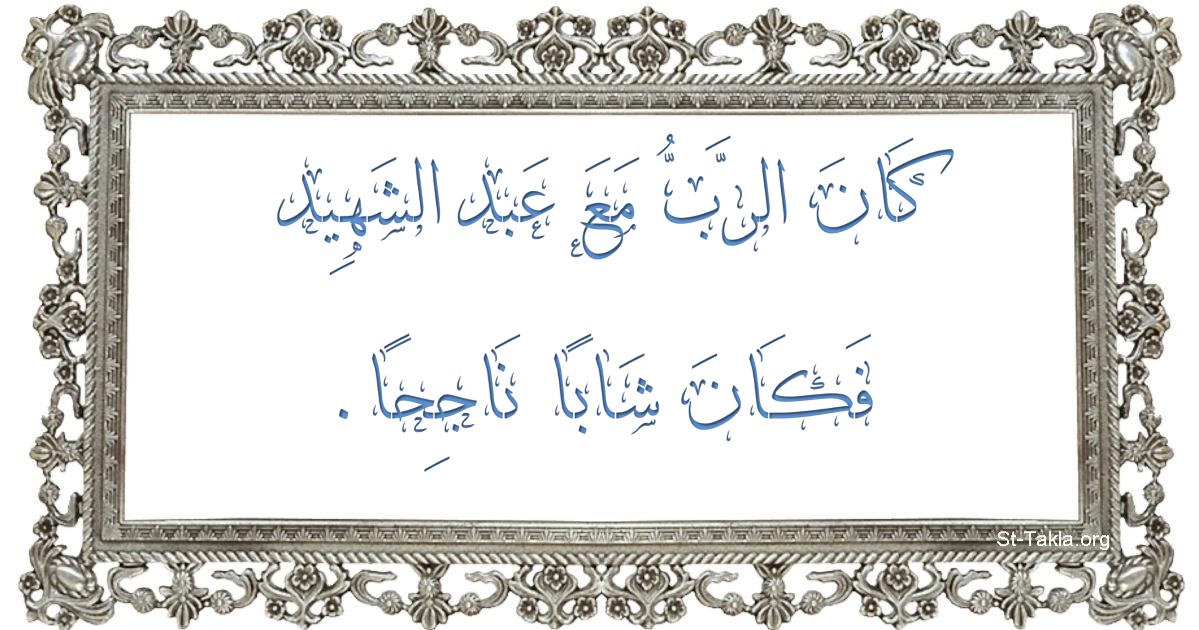 كَانَ الرَّبُّ مَعَ عَبْد الشَهِيِد
فَكَانَ شَابًا نَاجِحًا .
St-Takla.org